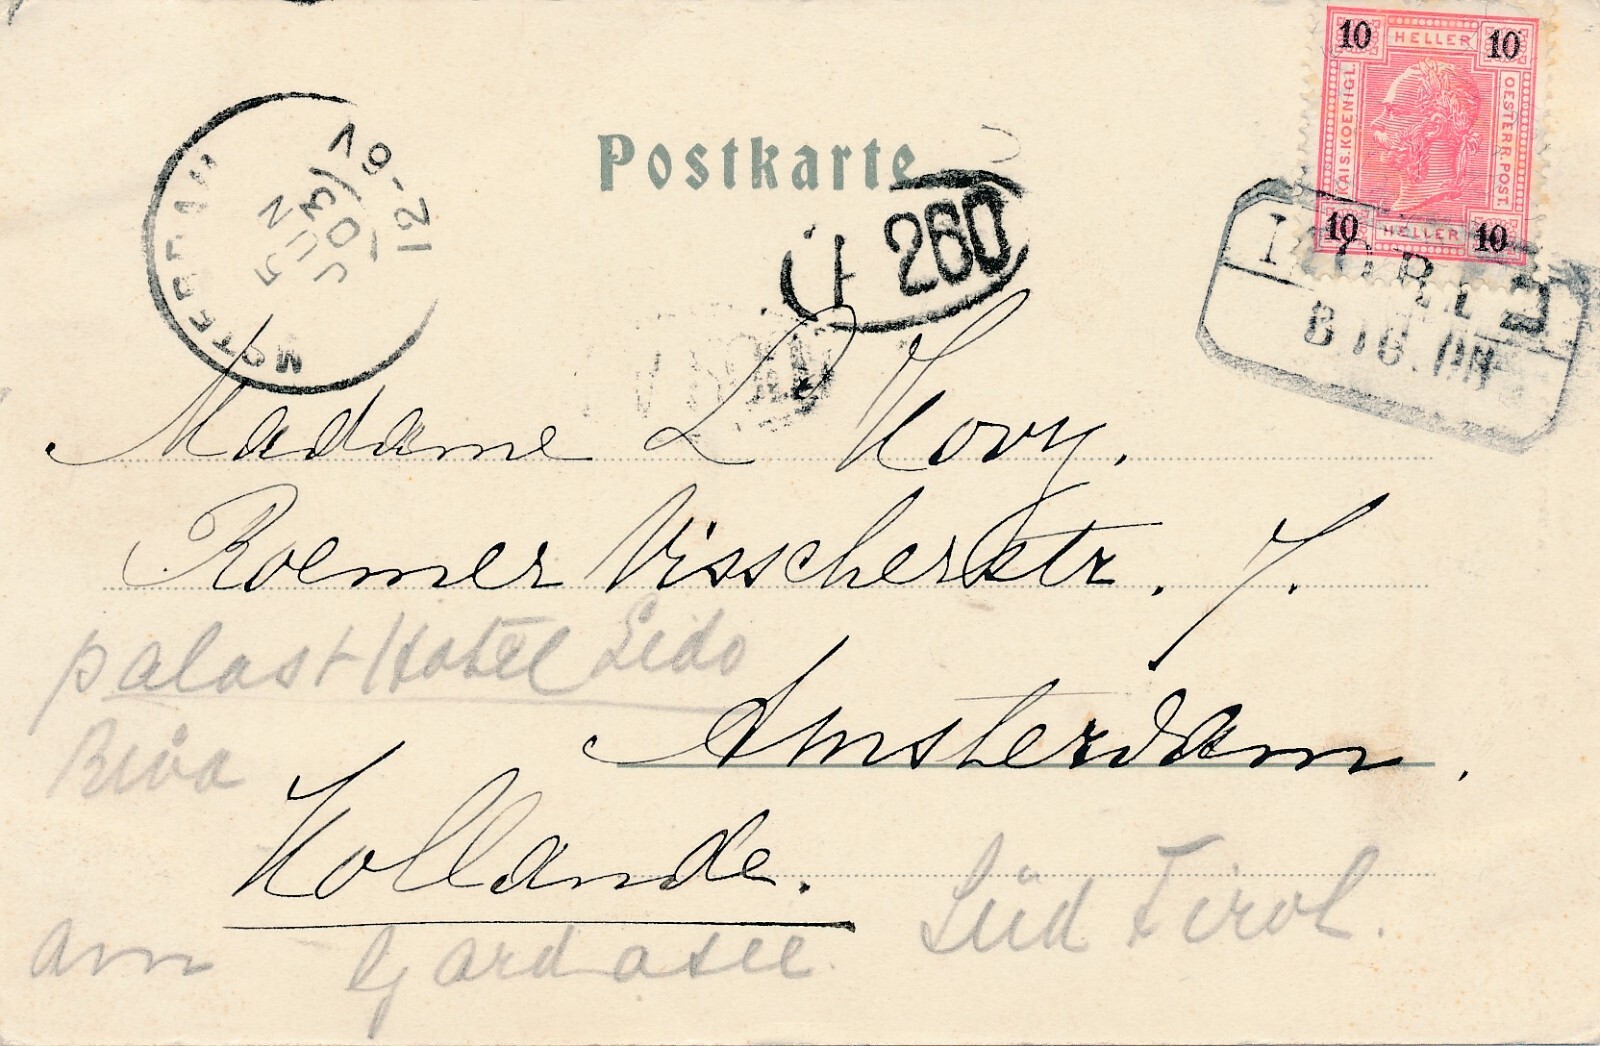 10 HELLER 10
KAIS. KOENIGL. OESTERR. POST.
10 HELLER 10
Postkarte
5 JUN 03
12-6V
260
Madame L Kovy.
Roemer Visscherstr. 7.
Amsterdam.
Hollande.
Palast Hotel Lido
Riva
am Gardasee Süd Tirol.